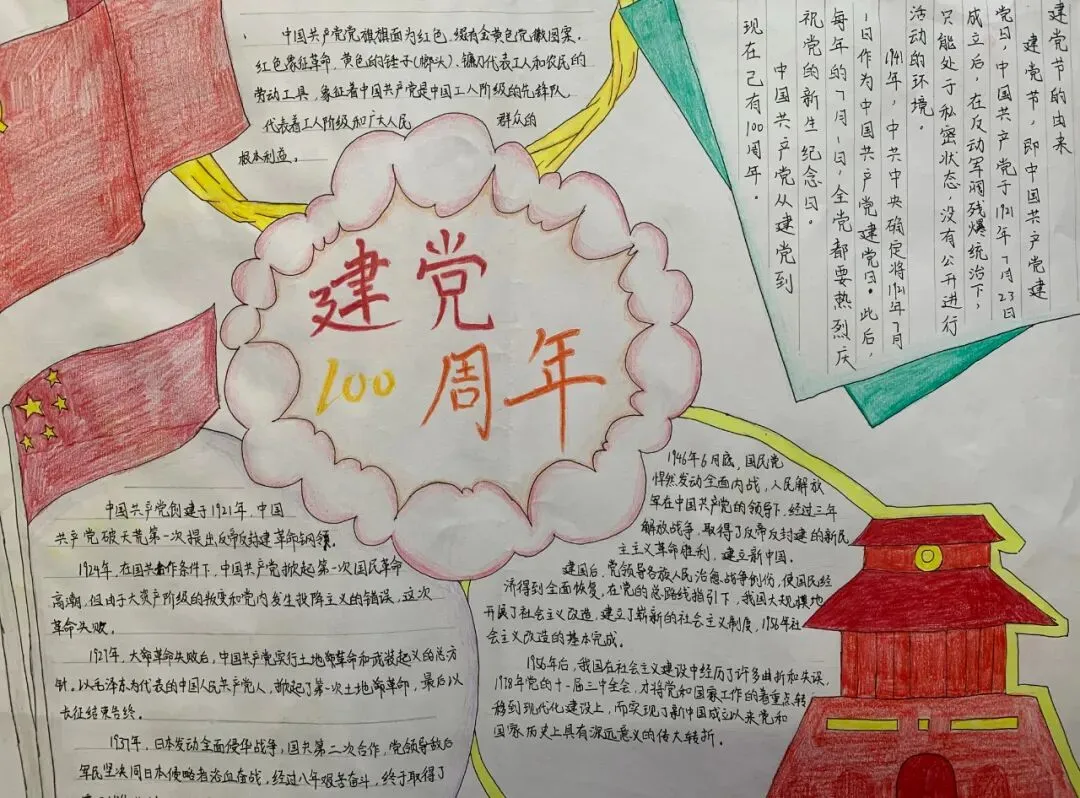 中国共产党党旗旗面为红色、缀有金黄色党徽图案。
红色象征革命,黄色的锤子(榔头)、镰刀代表工人和农民的
劳动工具,象征着中国共产党是中国工人阶级的先锋队,
代表着工人阶级和广大人民 群众的
根本利益。
建党节的由来
建党节,即中国共产党建
党日,中国共产党于1921年7月23日
成立后,在反动军阀残爆统治下,
只能处于私密状态,没有公开进行
活动的环境。
1941年,中共中央确定将1921年7月
1日作为中国共产党建党日。此后,
每年的7月1日,全党都要热烈庆
祝党的新生纪念日。
中国共产党从建党到
现在已有100周年。
建党
100周年
中国共产党创建于1921年,中国
共产党破天荒第一次提出反帝反封建革命纲领。
1924年,在国共合作条件下,中国共产党掀起第一次国民革命
高潮,但由于大资产阶级的叛变和党内发生投降主义的错误,这次
革命失败。
1927年,大革命失败后,中国共产党实行土地革命和武装起义的总方
针。以毛泽东为代表的中国人民共产党人,掀起了第一次土地革命,最后以
长征结束告终。
1937年,日本发动全面侵华战争,国共第二次合作,党领导敌后
军民坚决同日本侵略者浴血奋战,经过八年艰苦奋斗,终于取得了
1946年6月底,国民党
悍然发动全面内战,人民解放
军在中国共产党的领导下,经过三年
解放战争,取得了反帝反封建的新民
主主义革命胜利,建立新中国。
建国后,党领导各族人民治愈战争创伤,使国民经
济得到全面恢复,在党的总路线指引下,我国大规模地
开展了社会主义改造,建立了崭新的社会主义制度,1956年社
会主义改造的基本完成。
1956年后,我国在社会主义建设中经历了许多曲折和失误,
1978年党的十一届三中全会,才将党和国家工作的着重点转
移到现代化建设上,而实现了新中国成立以来党和
国家历史上具有深远意义的伟大转折。